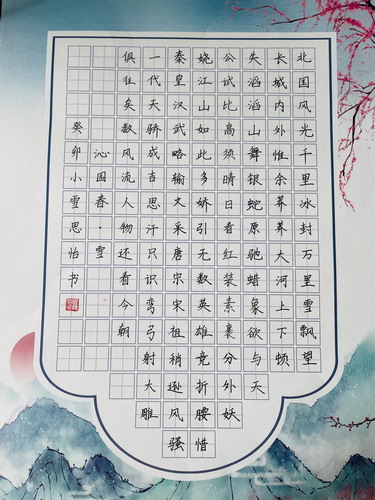 北国风光千里冰封万里雪飘望
长城内外惟余莽莽大河上下顿
失滔滔山舞银蛇原驰蜡象欲与天
公试比高须晴日看红装素裹分外妖
娆江山如此多娇引无数英雄竞折腰惜
秦皇汉武略输文采唐宗宋祖稍逊风骚
一代天骄成吉思汗只识弯弓射大雕
俱往矣数风流人物还看今朝
沁园春·雪
癸卯小雪思怡书